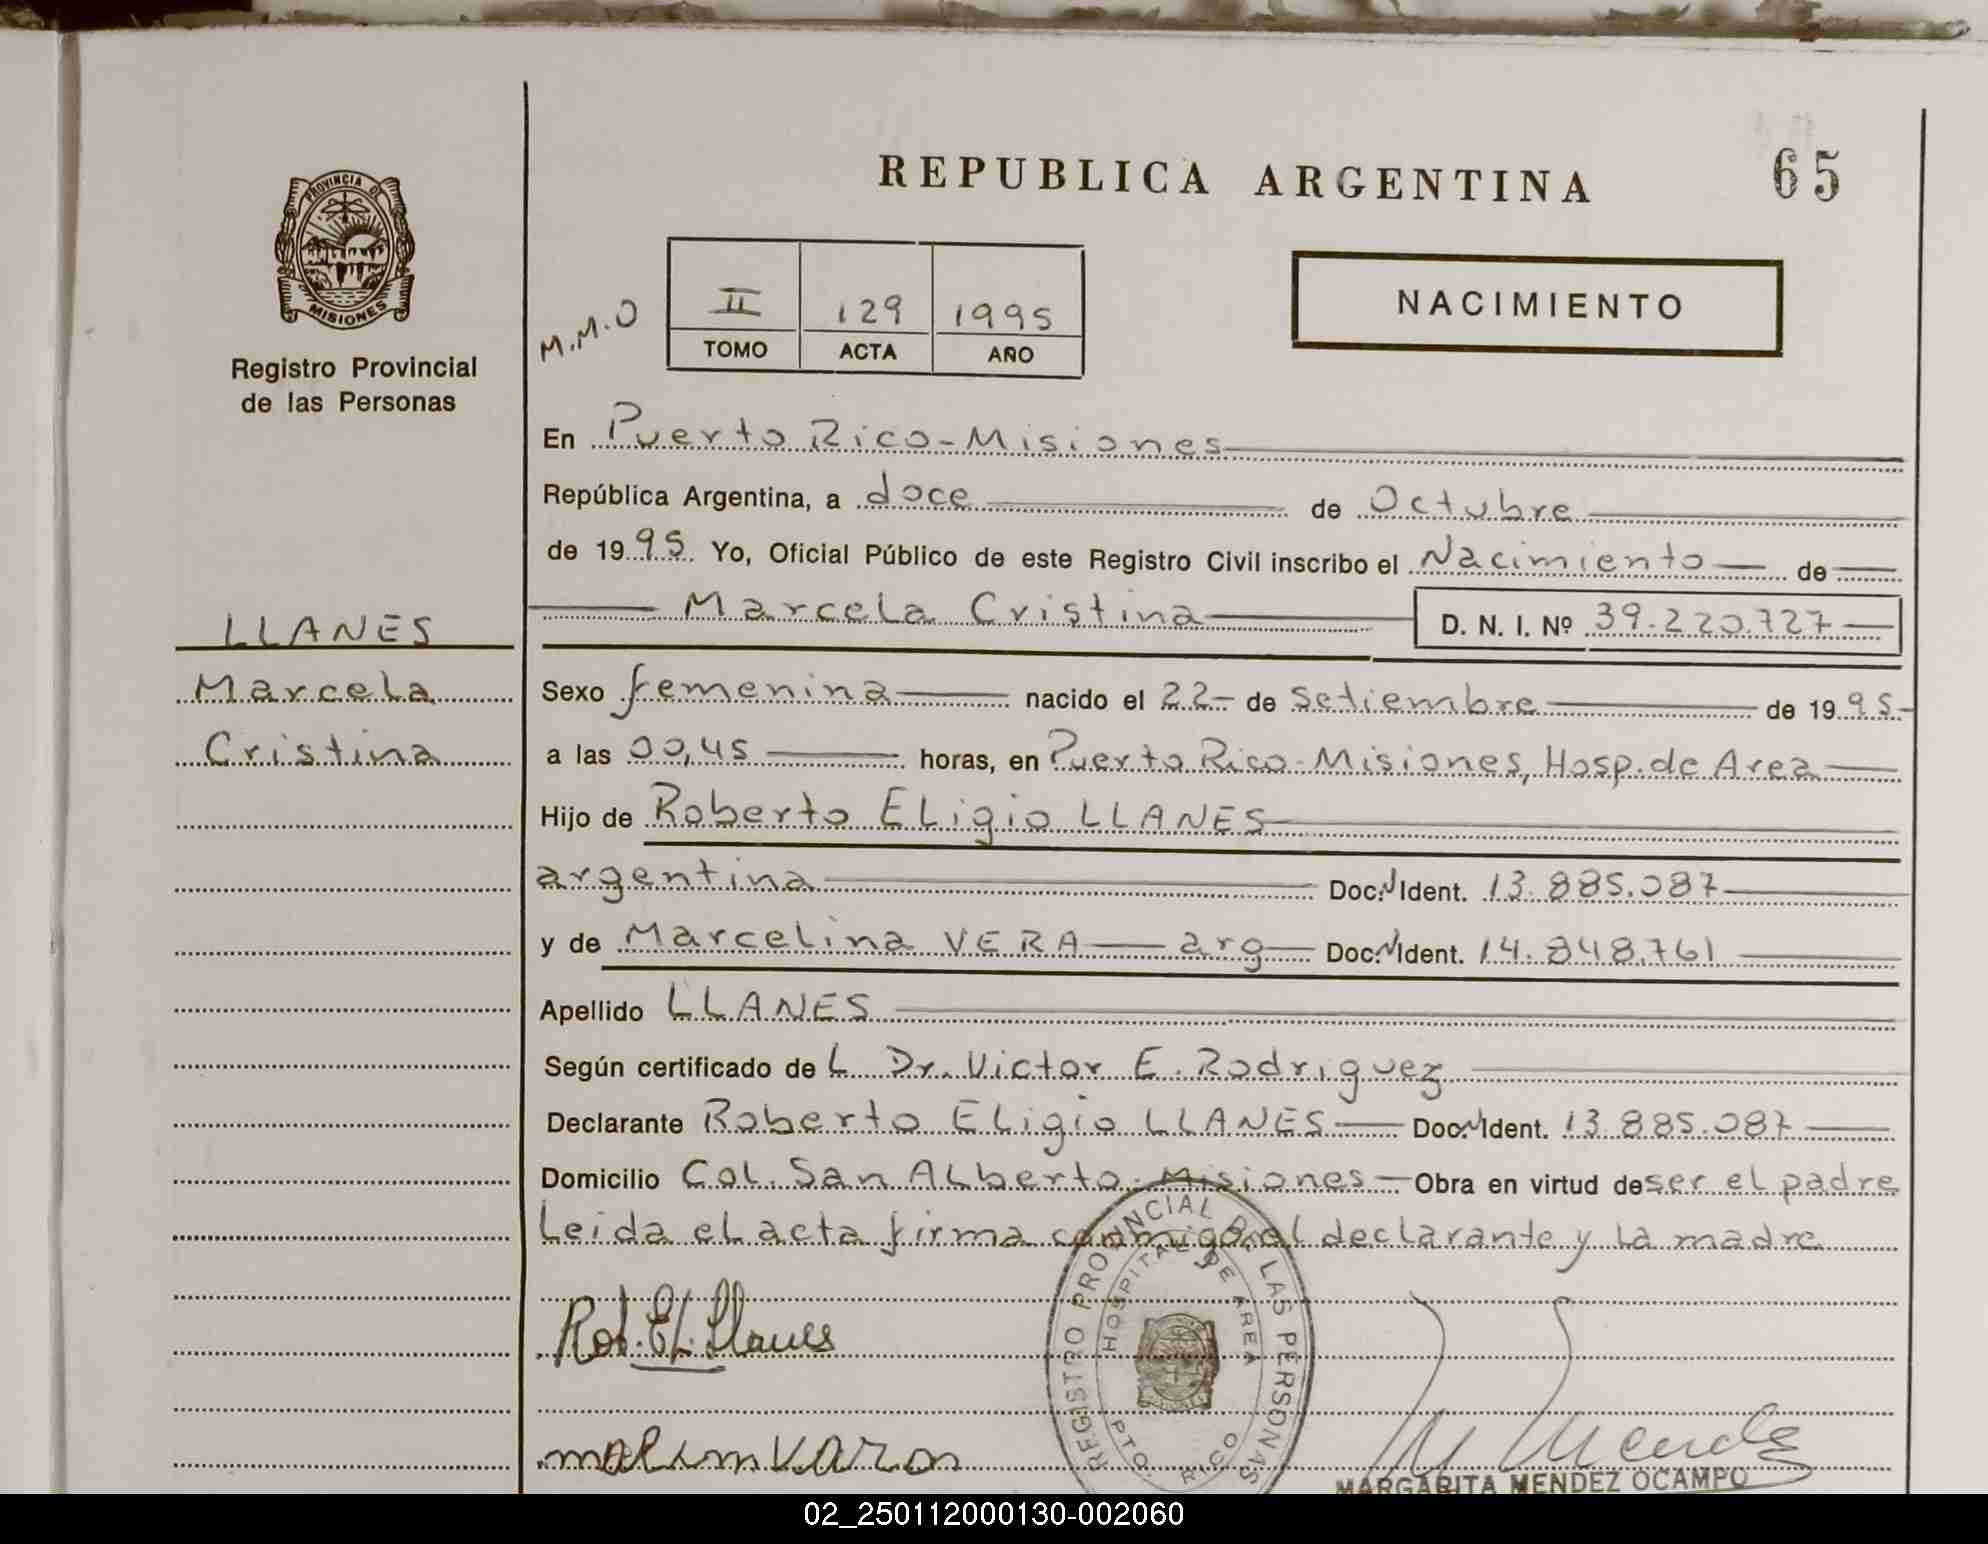 REPUBLICA ARGENTINA
65
PROVINCIA DE
MISIONES
Registro Provincial
de las Personas
M.M.O
II 129 1995
TOMO ACTA AÑO
NACIMIENTO
En Puerto Rico-Misiones
República Argentina, a doce de Octubre
de 1995 Yo, Oficial Público de este Registro Civil inscribo el Nacimiento de
Marcela Cristina D. N. I. Nº 39.220.727
LLANES
Marcela
Cristina
Sexo femenina nacido el 22- de Setiembre de 1995-
a las 00,45 horas, en Puerto Rico-Misiones, Hosp. de Area
Hijo de Roberto ELigio LLANES
argentina Doc. Ident. 13.885.087
y de Marcelina VERA arg Doc. Ident. 14.848.761
Apellido LLANES
Según certificado de L Dr. Victor E. Rodriguez
Declarante Roberto ELigio LLANES Doc. Ident. 13.885.087
Domicilio Col. San ALberto-Misiones Obra en virtud de ser el padre
Leida el acta firma conmigo el declarante y La madre
Rob. El. Llanes
REGISTRO PROVINCIAL DE LAS PERSONAS
HOSPITAL DE AREA
PTO. RICO
M Mendez
MARGARITA MENDEZ OCAMPO
02_250112000130-002060